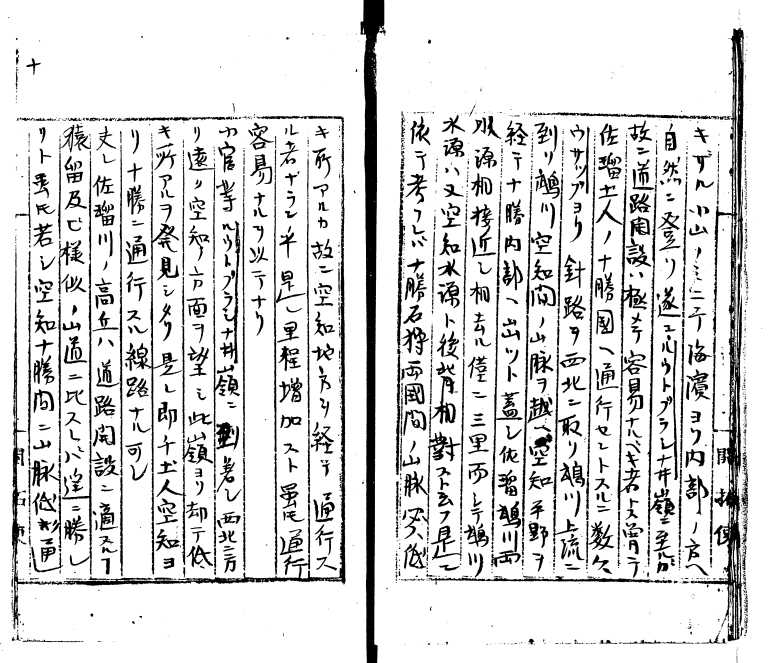 キザル小山ノミニテ海濱ヨリ内部ノ方ヘ
自然ニ登リ遂ニルウトブラシナ井嶺ニ至ル
故ニ道路開設ハ極メテ容易ナルベキ者トス曽テ
佐瑠土人ノ十勝國ヘ通行セントスルニ数々
ウサップヨリ針路ヲ西北ニ取リ鵡川上流ニ
到リ鵡川空知間ノ山脈ヲ越ヘ空知平野ヲ
経テ十勝内部ヘ出ツト蓋シ佐瑠鵡川両
水源相接近シ相去ル僅ニ三里而シテ鵡川
水源ハ又空知水源ト後背相對スト云フ是ニ
依テ考フレバ十勝石狩両國間ノ山脈必ス低
キ所アルカ故ニ空知地方ヲ経テ通行ス
ル者ナラン半是レ里程増加スト雖モ通行
容易ナルヲ以テナリ
官等ルウトブラシナ井嶺ニ到着シ西北ニ方
リ遠ク空知ノ方面ヲ望ミ此嶺ヨリ却テ低
キ所アルヲ発見シタリ是レ即チ土人空知ヨ
リ十勝ニ通行スル線路ナル可シ
又シ佐瑠川ノ高丘ハ道路開設ニ適スルヿ
猿留及ビ様似ノ山道ニ比スレバ遥ニ勝レ
リト雖モ若シ空知十勝間ニ山脈低
開拓使
十